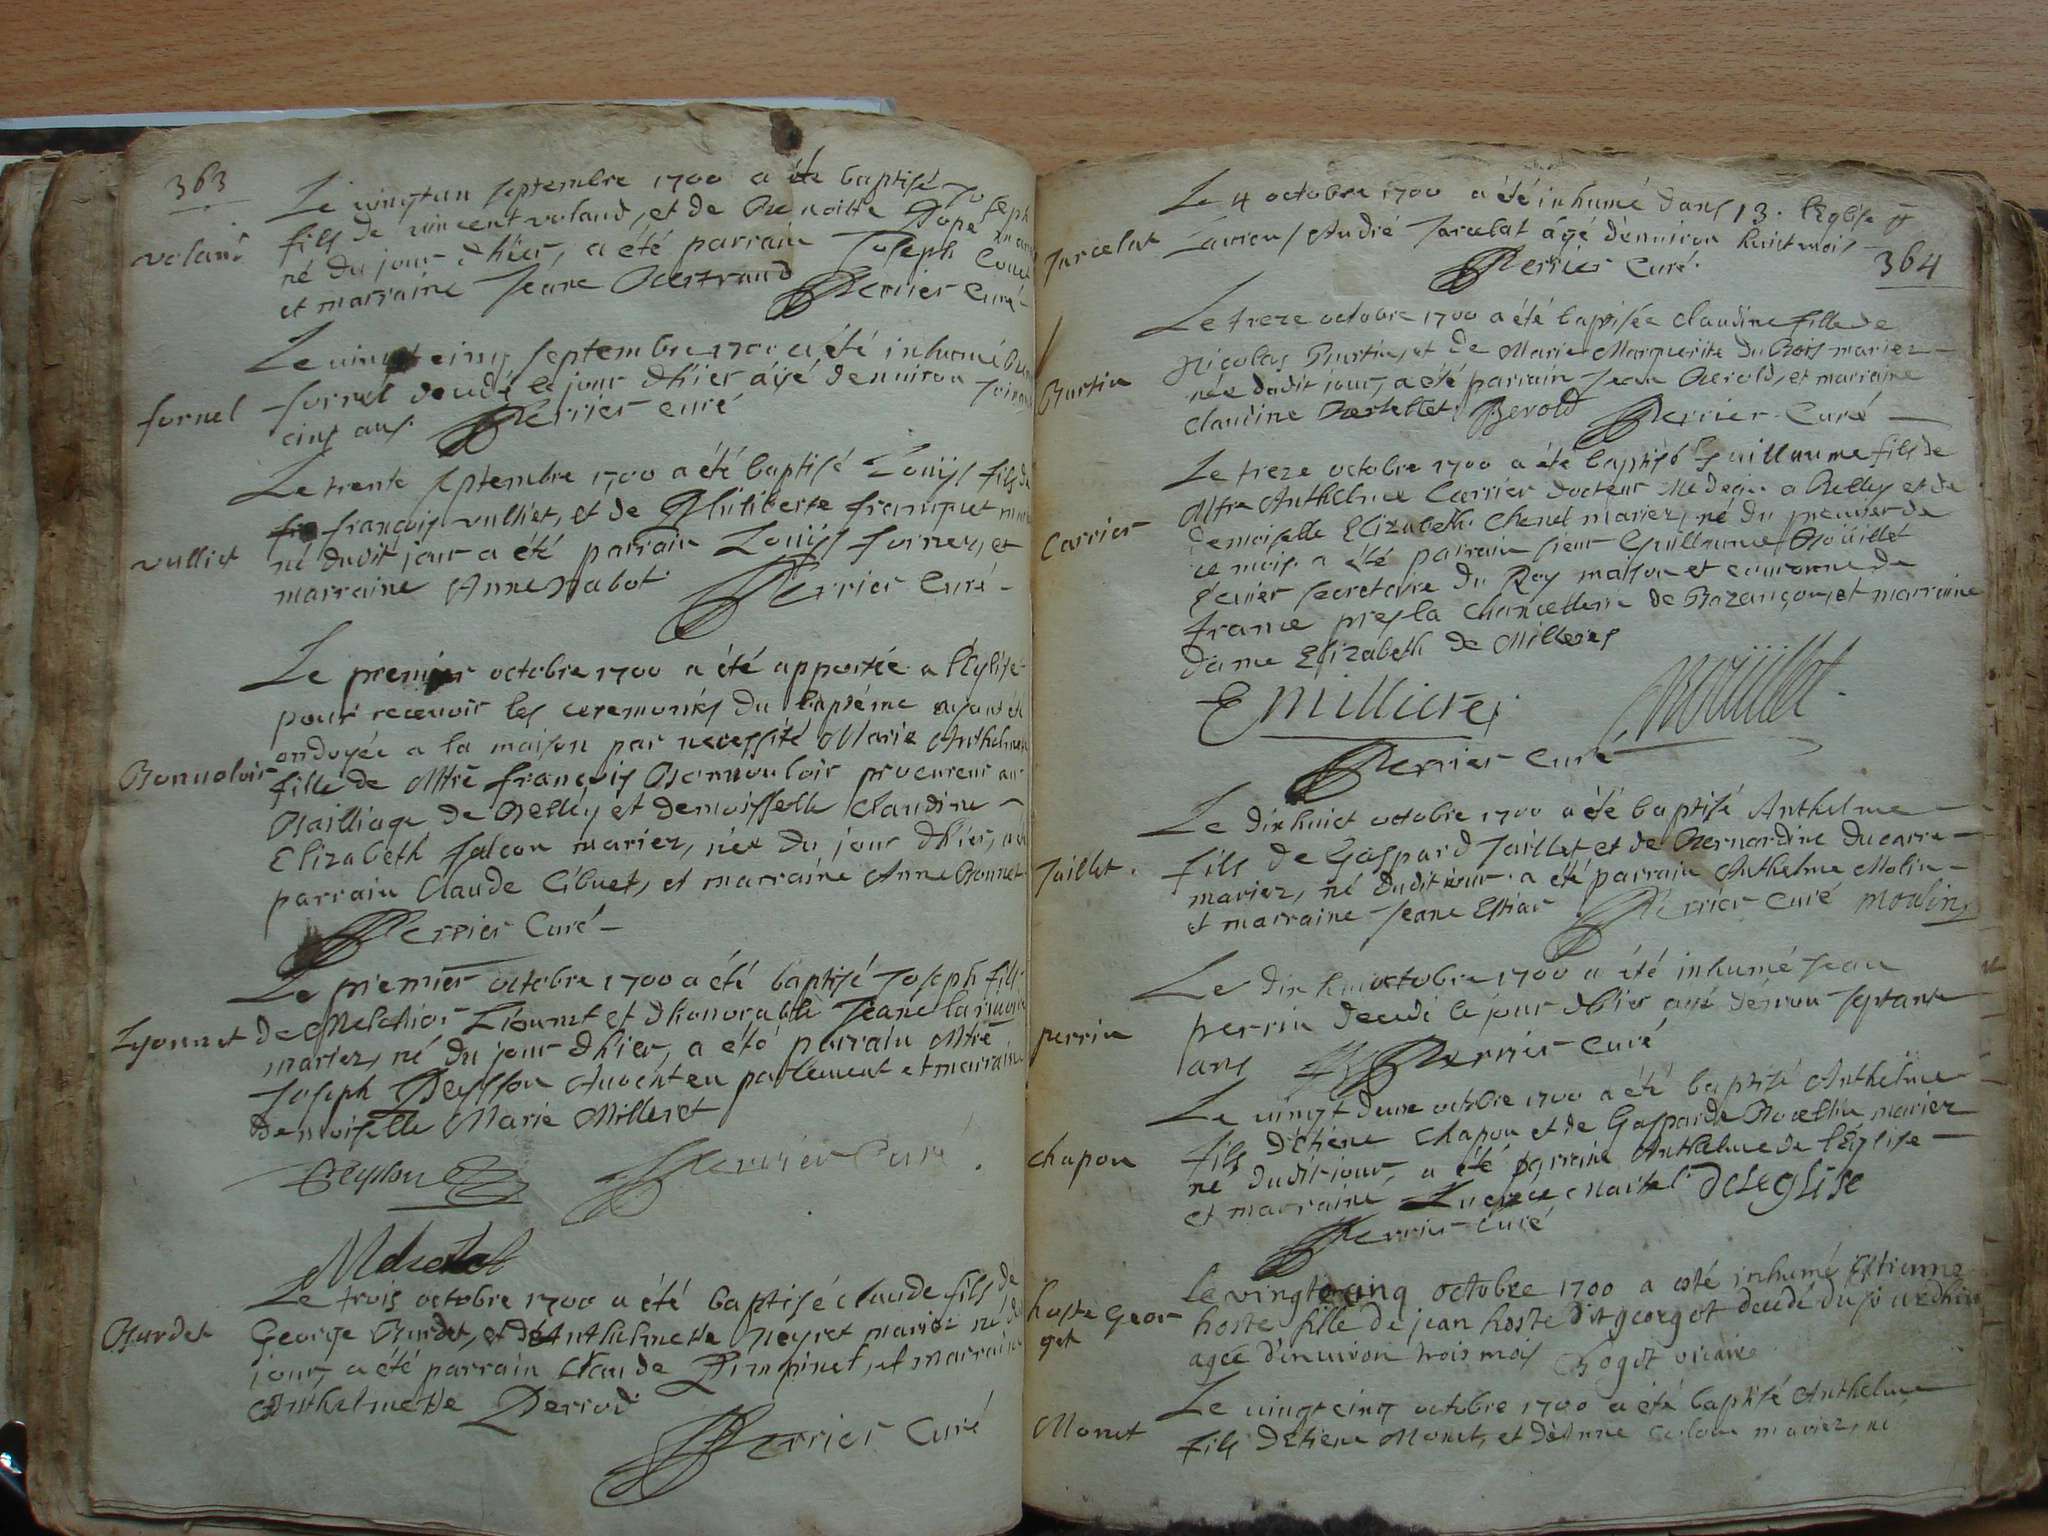 363
Le vingtun septembre 1700 a été baptisé Joseph
voland
fils de vincent voland, et de Benoitte
né du jour d'hier, a été parrain Joseph
et marraine Jeane Bertrand Perrier Curé
Le vingt cinq septembre 1700 a été inhumé
fornel
fornel decedé le jour d'hier agé denviron
cinq ans. Perrier curé
Le trente septembre 1700 a été baptisé Louijs fils de
françois vulliet, et de Philiberte franquet
vulliet
né dudit jour a été parrain Louijs fornery, et
marraine Anne Nabot. Perrier Curé
Le premier octobre 1700 a été apportée a l'Eglise
pour recevoir les ceremonies du baptéme ayant été
ondoyée a la maison par necessité Marie Anthelme
Bonnuoloir
fille de Mtre françois Bonnouloir procureur au
Bailliage de Belley et demoisselle Claudine
Elizabeth falcon mariez, née du jour d'hier, a été
parrain Claude Cibuet, et marraine Anne Bonnet
Perrier Curé
Le premier octobre 1700 a été baptisé Joseph fils
Lyonnet
de Melchior Lionnet et d'honorable Jeane
mariez, né du jour d'hier, a été parrain Mtre
Joseph Peysson Avocat en parlement et marraine
demoiselle Marie Milleret
Peysson Perrier Curé
Le trois octobre 1700 a été baptisé claude fils de
Burdet
George Burdet, et d'Anthelmette Neyret mariez né du
jour, a été parrain Claude et marraine
Anthelmette Perrod
Perrier Curé
Le 4 octobre 1700 a été inhumé dans 13. l'Eglise
Jarcelat
André Jarcelat agé d'environ huict mois
364
Perrier Curé.
Le treze octobre 1700 a été baptisée claudine fille de
Nicolas Burtin, et de Marie Marguerite du Bois mariez
Burtin
née dudit jour, a été parrain Jean Berold, et marraine
Claudine Berthet Berold Perrier Curé
Le treze octobre 1700 a été baptisé Guillaume fils de
Mtre Anthelme Carrier docteur Medecin a Belley et de
Carrier
demoiselle Elizabeth Chenel mariez, né du premier de
ce mois a été parrain sieur Guillaume Boüillet
Ecuier secretaire du Roy maison et couronne de
france pres la Chancellerie de Bezançon, et marraine
dame Elizabeth de Millieres
E Millieres Boüillet
Perrier Curé
Le dix huict octobre 1700 a été baptisé Anthelme
fils de Gaspard Jaillet et de Bernardine Ducarre
Jaillet.
mariez, né dudit jour a été parrain Anthelme Molin
et marraine Jeane Perrier Curé moulin
Le dix huit octobre 1700 a été inhumé Jean
perrin
perrin decedé le jour d'hier agé d'environ septante
ans Perrier curé
Le vingt deux octobre 1700 a été baptisé Anthelme
fils d'Etiene Chapon et de Gasparde mariez
chapon
né dudit jour, a été parrain Anthelme de l'Eglise
et marraine Lucrece Martel DeLEGLISE
Perrier curé
le vingtcinq octobre 1700 a esté inhumé Ettienne
hoste Geor
get
hoste fille de jean hoste dit georget decedé du jourd'hui
agée d'environ trois mois Bogot vicaire
Le vingtcinq octobre 1700 a été baptisé Anthelme
Monet
fils d'Etiene Monet, et d'Anne mariez, né